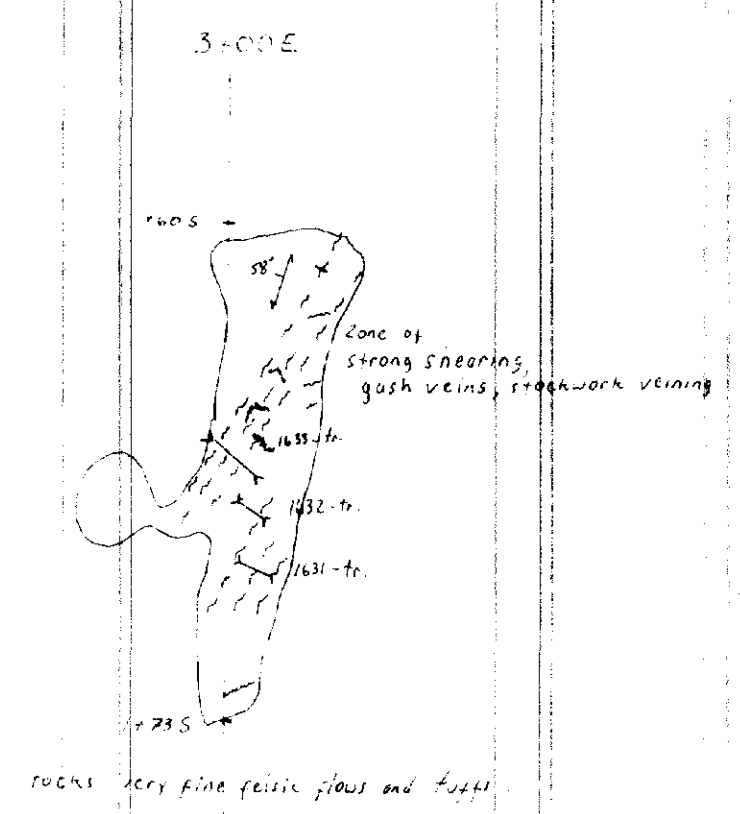 3+00E
+60 S
58°
Zone of
strong shearing,
gash veins, stockwork veining
1633-tr.
1632-tr.
1631-tr.
+73 S
rocks very fine felsic flows and tuffs